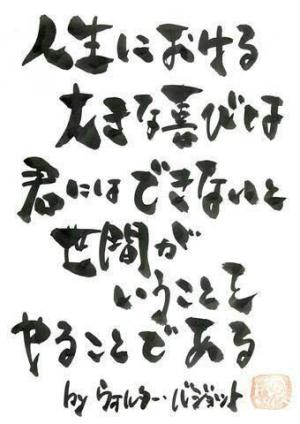 人生における
大きな喜びは
君にはできないと
世間が
いうことを
やることである
by ウォルター・バジョット